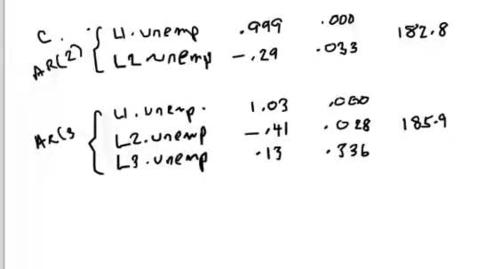 C. L1.unemp .999 .000 182.8
AR(2) L2.unemp -.29 .033
L1.unemp. 1.03 .000
AR(3 L2.unemp -.41 .028 185.9
L3.unemp .13 .336